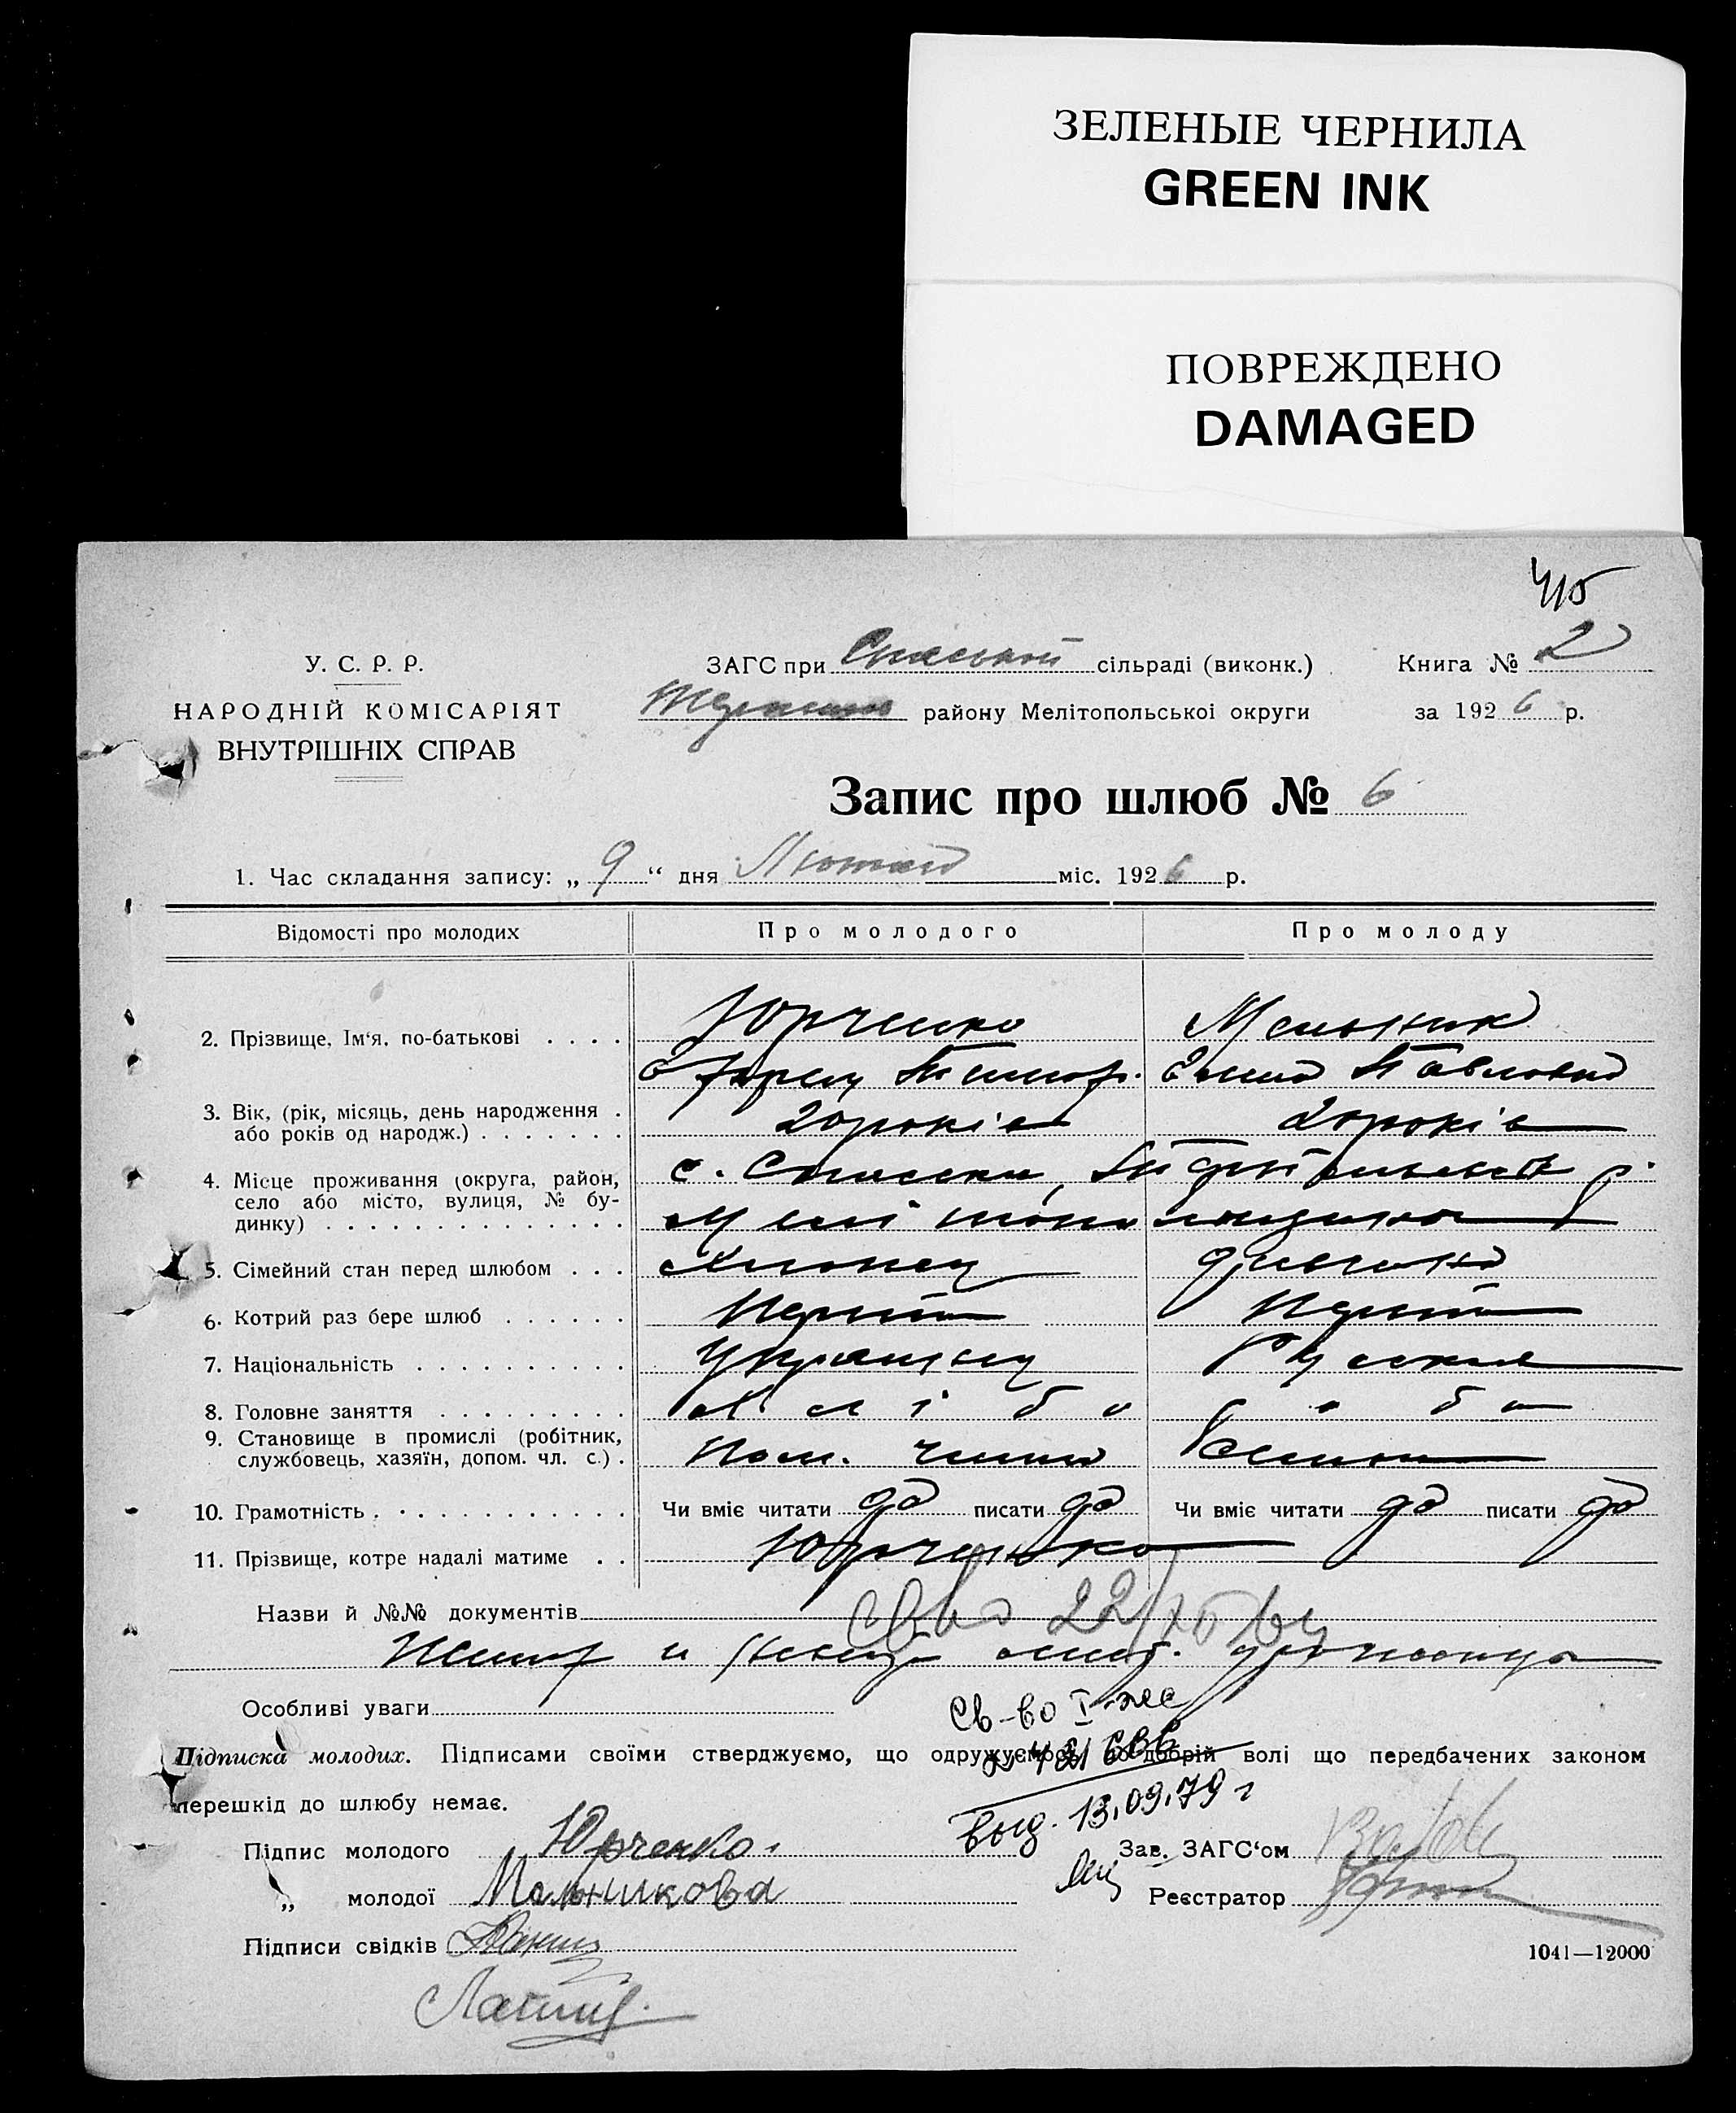 ЗЕЛЕНЫЕ ЧЕРНИЛА
GREEN INK
ПОВРЕЖДЕНО
DAMAGED
415
У. С. Р. Р.
НАРОДНІЙ КОМІСАРІЯТ
ВНУТРІШНІХ СПРАВ
ЗАГС при Спаській сільраді (виконк.)
району Мелітопольської округи
Книга № 2
за 1926 р.
Запис про шлюб № 6
1. Час складання запису: „ 9 “ дня Лютого міс. 1926 р.
Відомості про молодих Про молодого Про молоду
2. Прізвище, Ім‘я, по-батькові . . . . Юрченко Мельник
Павловна
3. Вік, (рік, місяць, день народження . або років од народж.) . . . . . . . 20 років 20 років
4. Місце проживання (округа, район, село або місто, вулиця, № будинку) . . . . . . . . . . . . . . с. Спаське, р.
5. Сімейний стан перед шлюбом . . . хлопец дівчина
6. Котрий раз бере шлюб . . . . . . Перший Перший
7. Національність . . . . . . . . . . Українец Руская
8. Головне заняття . . . . . . . . . Х л і б о р о б
9. Становище в промислі (робітник, службовець, хазяїн, допом. чл. с.) . Пом. члена
10. Грамотність . . . . . . . . . . . Чи вміє читати да писати да Чи вміє читати да писати да
11. Прізвище, котре надалі матиме . . Юрченко
Назви й №№ документів
Особливі уваги
Св-во I-же
421686
выд. 13.09.79 г
Підписка молодих. Підписами своїми стверджуємо, що одружуємось по добрій волі що передбачених законом
перешкід до шлюбу немає.
Підпис молодого Юрченко
Зав. ЗАГС‘ом
„ молодої Мельникова
Реєстратор
Підписи свідків
1041—12000